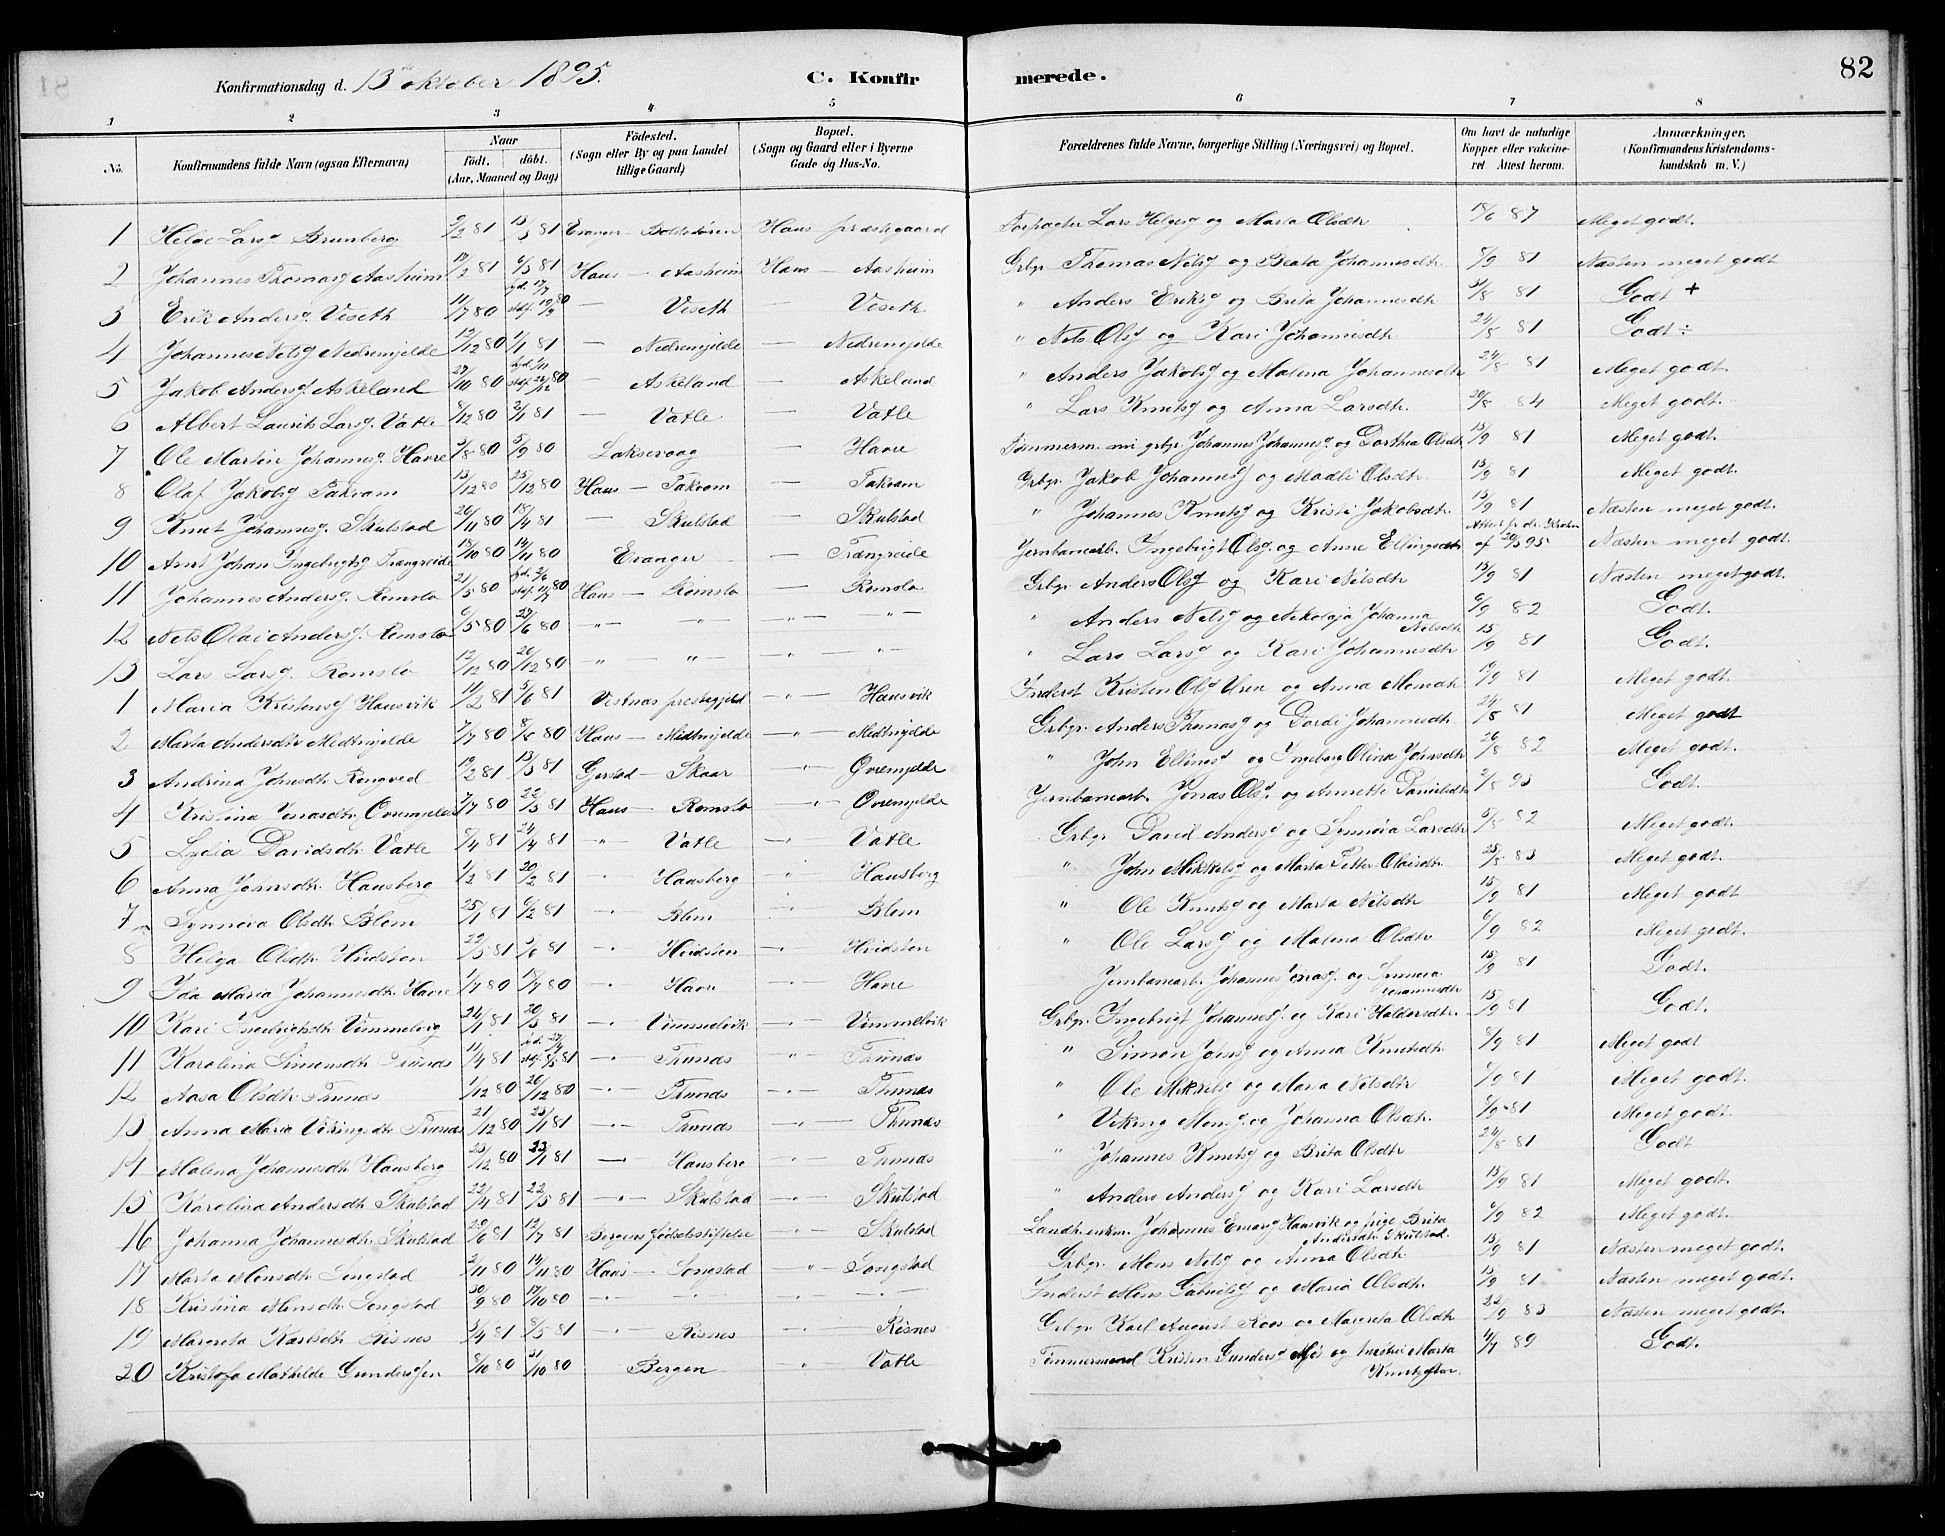 81
82
Konfirmationsdag d. 13de oktober 1895.
C. Konfirmerede.
1 2 3 4 5 6 7 8
No.
Konfirmandens fulde Navn (ogsaa Efternavn)
Naar
födt. döbt.
(Aar, Maaned og Dag)
Födested.
(Sogn eller By og paa Landet
tillige Gaard)
Bopæl.
(Sogn og Gaard eller i Byerne
Gade og Hus-No.
Forældrenes fulde Navne, borgerlige Stilling (Næringsvei) og Bopæl.
Om havt de naturlige
Kopper eller vakcineret
Attest herom.
Anmærkninger.
(Konfirmandens Kristendomskundskab
m. V.)
1 Helge Larsg Brunberg 2/2 81 13/3 81 Evanger Haus præstegaard Forpagter Lars Helgesg og Marta Olsdtr 18/6 87 Meget godt.
2 Johannes Thomasg Aasheim 19/2 81 6/3 81 Haus — Aasheim Haus — Aasheim Grbgr. Thomas Nelsg og Beata Johannesdtr 8/9 81 Næsten meget godt
3 Erik Andersg Viseth 11/7 80 hjd. 17/7 stef. 19/9 80 — Viseth — Viseth " Anders Eriksg og Brita Johannesdtr 31/8 81 Godt +
4 Johannes Nelsg Nedremjelde 12/12 80 1/1 81 — Nedremjelde — Nedremjelde " Nels Olsg og Kari Johannesdtr 24/8 81 Godt ÷
5 Jakob Andersg Askeland 27/10 80 stef. 26/12 80 — Askeland — Askeland " Anders Jakobsg og Malena Johannesdtr 24/8 81 Meget godt.
6 Albert Laurits Larsg. Vatle 8/12 80 2/1 81 — Vatle — Vatle " Lars Knutsg og Anna Larsdtr. 20/8 84 Meget godt.
7 Ole Martin Johannesg. Havre 3/8 80 5/9 80 Laksevaag — Havre Tømmerm. Johannes Johannesg og Dorthea Olsdtr 15/9 81 Meget godt.
8 Olaf Jakobsg Takvam 13/12 80 25/12 80 Haus — Takvam — Takvam Grbgr. Jakob Johannesg og Madli Olsdtr. 15/9 81 Meget godt.
9 Knut Johannesg. Skulstad 26/11 80 18/4 81 — Skulstad — Skulstad " Johannes Knutsg og Kristi Jakobsdtr. 15/9 81 Næsten meget godt.
10 Arnt Johan Ingebrigtsg Trængreide 18/10 80 14/11 80 Evanger — Trængreide Jernbanearb. Ingebrigt Olsg. og Anne Ellingsdtr Attest fr. dr. af 95 Næsten meget godt.
11 Johannes Andersg. Romslo 21/5 80 hjd. 2/6 stef. 80 Haus — Romslo — Romslo Grbgr Anders Olsg og Kari Nilsdtr 15/9 81 Næsten meget godt.
12 Nels Olai Andersg. Romslo 6/5 80 27/6 80 — " — " — — " — " — " Anders Nelsg og Nikoloja Johanna Nelsdtr 6/9 82 Godt.
13 Lars Larsg. Romslo 12/12 80 26/12 80 — " — " — — " — " — " Lars Larsg og Kari Johannesdtr 15/9 81 Godt.
1 Maria Kristensg Hausvik 11/2 81 5/6 81 Vestnæs prestegjeld — " — Hausvik Inderst Kristen Olsg Uren og Anna Monsdtr 19/9 81 Meget godt.
2 Marta Andersdtr Medtmjelde 7/7 80 8/8 80 Haus — Medtmjelde — " — Medtmjelde Grbgr. Anders Thomasg og Dordi Johannesdtr 24/8 81 Meget godt
3 Andrina Johnsdtr Rongved 19/2 81 13/3 81 Gjerstad — Skaar " Øvremjelde " John Ellingsg og Ingeborg Olina Johnsdtr 26/8 82 Meget godt.
4 Kristina Jonasdtr. Øvremjelde 7/7 80 22/5 81 Haus — Romslo — " — Øvremjelde Jernbanearb. Jonas Olsg. og Annette Danielsdtr 2/8 93 Godt.
5 Lydia Davidsdtr Vatle 8/4 81 24/4 81 " Vatle " Vatle Grbgr David Andersg og Synneva Larsdtr 5/8 82 Meget godt.
6 Anna Johnsdtr. Hausberg 1/2 81 20/2 81 " Hausberg " Hausberg " John Mikkelsg og Marta Petter Olaisdtr. 25/8 83 Meget godt.
7 Synneva Olsdtr. Blom 25/1 81 6/2 81 " Blom " Blom " Ole Knutsg og Marta Nelsdtr 15/9 81 Meget godt
8 Helga Olsdtr. Hvidsten 22/5 81 5/6 81 " Hvidsten " Hvidsten " Ole Larsg og Malena Olsdtr 6/9 82 Meget godt.
9 Ida Maria Johannesdtr. Havre 1/7 80 17/7 80 " Havre " Havre Jernbanearb. Johannes Jonasg. og Synneva Johannesdtr 15/9 81 Godt.
10 Kari Ingebrigtsdtr. Vimmelvig 24/1 81 20/3 81 " Vimmelvik " Vimmelvik Grbgr. Ingebrigt Johannesg. og Kari Haldorsdtr. 15/9 81 Godt.
11 Karolina Simonsdtr. Trunæs 11/4 81 hjd. 17/4 stef. 8/5 81 " Thunæs " Thunæs " Simon Jonsg og Anna Knutsdtr 8/9 81 Meget godt
12 Aasa Olsdtr. Thunæs 1/12 80 26/12 80 " Thunæs " Thunæs " Ole Mikkelsg og Maria Nelsdtr 8/9 81 Meget godt.
13 Anna Maria Vikingsdtr Thunæs 21/12 80 23/1 81 " Thunæs " Thunæs " Viking Monsg. og Johanna Olsdtr. 8/9 81 Meget godt.
14 Malena Johannesdtr Hausberg 23/12 80 23/1 81 — Hausberg " Thunæs " Johannes Knutsg og Brita Olsdtr 24/8 81 Godt
15 Karolina Andersdtr Skulstad 22/4 81 22/5 81 " Skulstad " Skulstad " Anders Andersg og Kari Larsdtr 15/9 81 Meget godt.
16 Johanna Johannesdtr Skulstad 20/6 81 12/7 81 Bergens fødselsstiftelse " Skulstad Landh. enkm. Johannes Hausvik og pige Brita Andersdtr. Skulstad 6/9 82 Meget godt.
17 Marta Monsdtr. Songstad 2/11 80 14/11 80 Haus — Songstad " Songstad Grbgr. Mons Nelsg og Anna Olsdtr. 15/9 81 Næsten meget godt.
18 Kristina Monsdtr Songstad 30/9 80 17/10 80 " " " " Inderst Mons Gabrielsg og Maria Olsdtr. 15/9 81 Næsten meget godt.
19 Margreta Karlsdtr Risnes 3/4 81 8/5 81 " Risnes " Risnes Grbgr. Karl August Roos og Margreta Olsdtr 22/9 83 Næsten meget godt.
20 Kristofa Mathilde Gundersen 8/10 80 31/10 80 Bergen " Vatle Tømmermand Kristen Gundersg og hustru Marta Knutsdtr. 4/7 89 Godt.